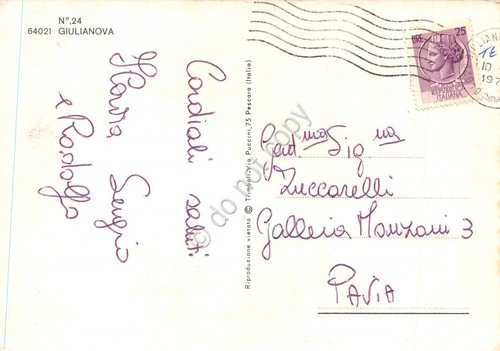 N°.24
64021 GIULIANOVA
Cordiali saluti
Flavia Sergio
e Rodolfo
Riproduzione vietata © Trimboli-Via Puccini,75 Pescara (Italia)
LIRE 25
10
197
Gent.ma Sig.na
Zuccarelli
Galleria Manzoni 3
PAVIA
do not copy